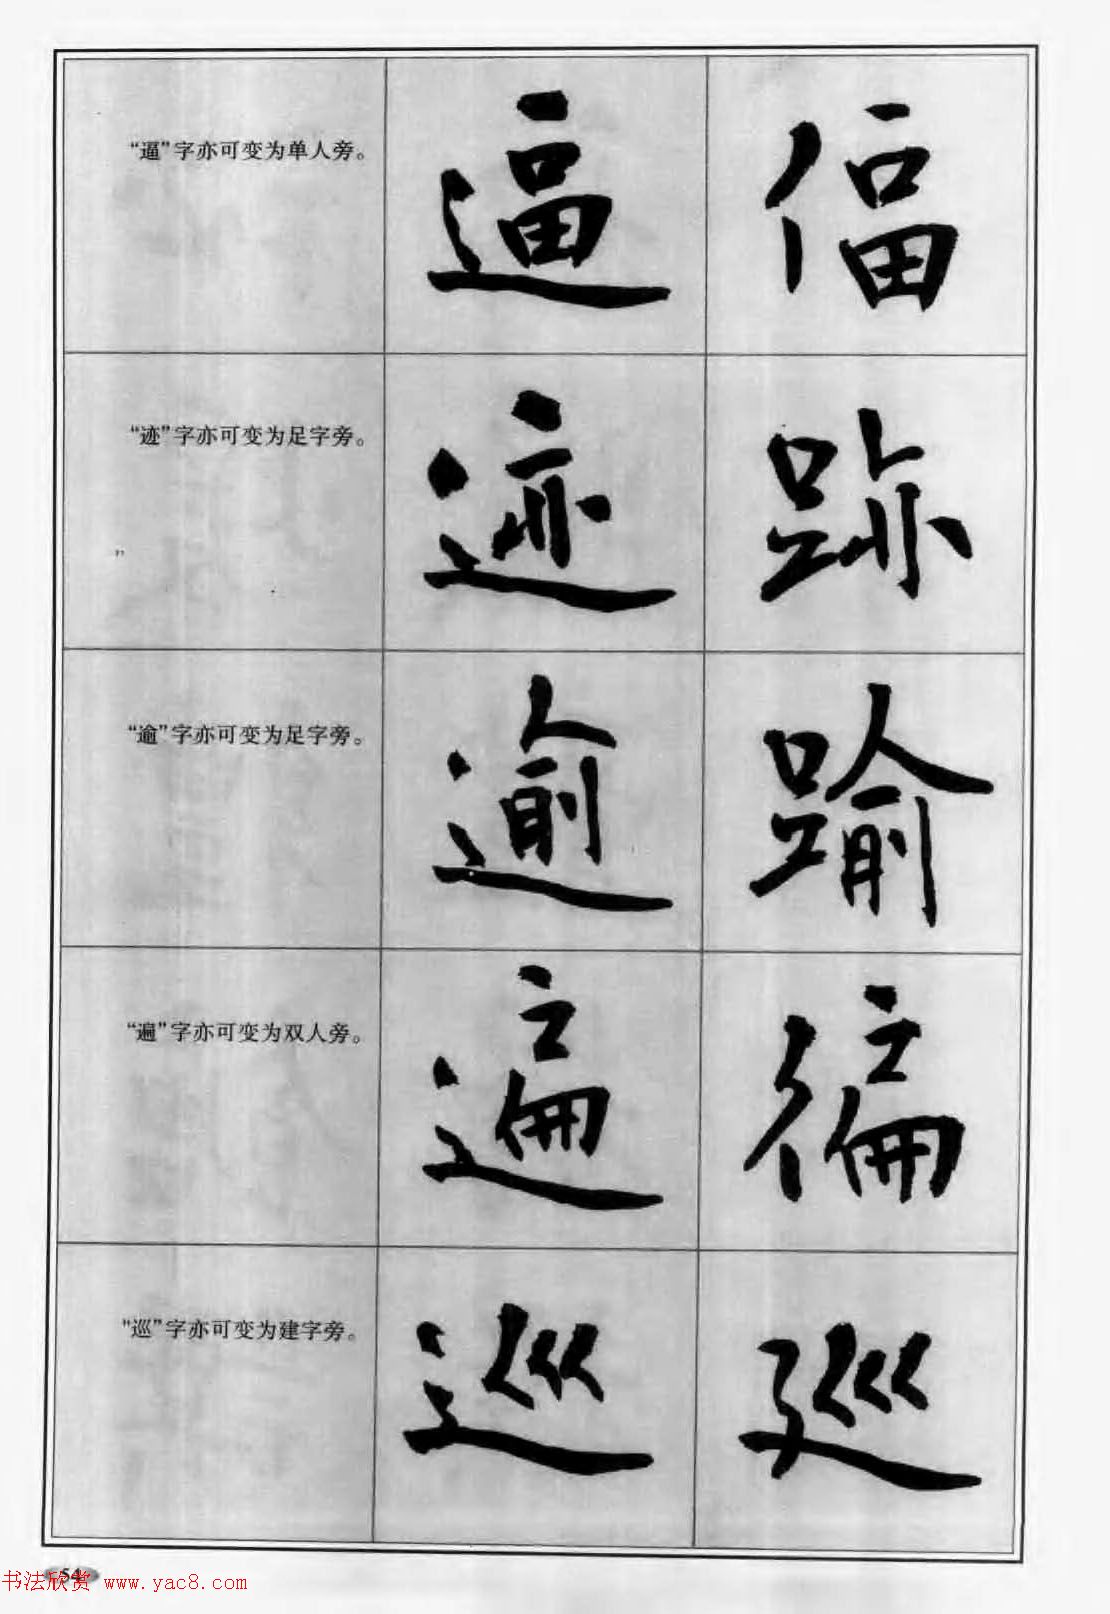 “逼”字亦可变为单人旁。 逼 偪
“迹”字亦可变为足字旁。 迹 跡
“逾”字亦可变为足字旁。 逾 踰
“遍”字亦可变为双人旁。 遍 徧
“巡”字亦可变为建字旁。 巡 廵
54
书法欣赏 www.yac8.com